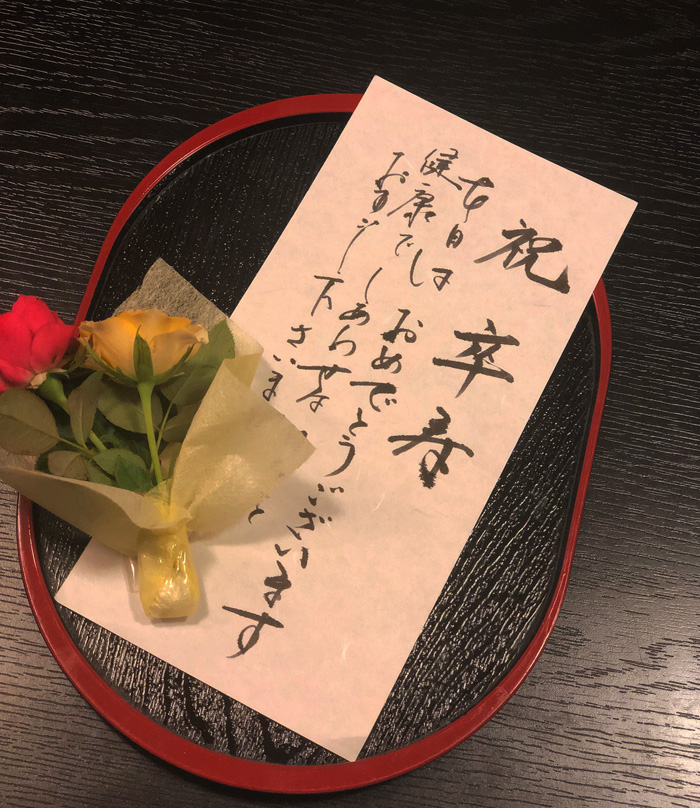 祝 卒寿
本日は おめでとうございます
健康で しあわせな
おすごし下さいま